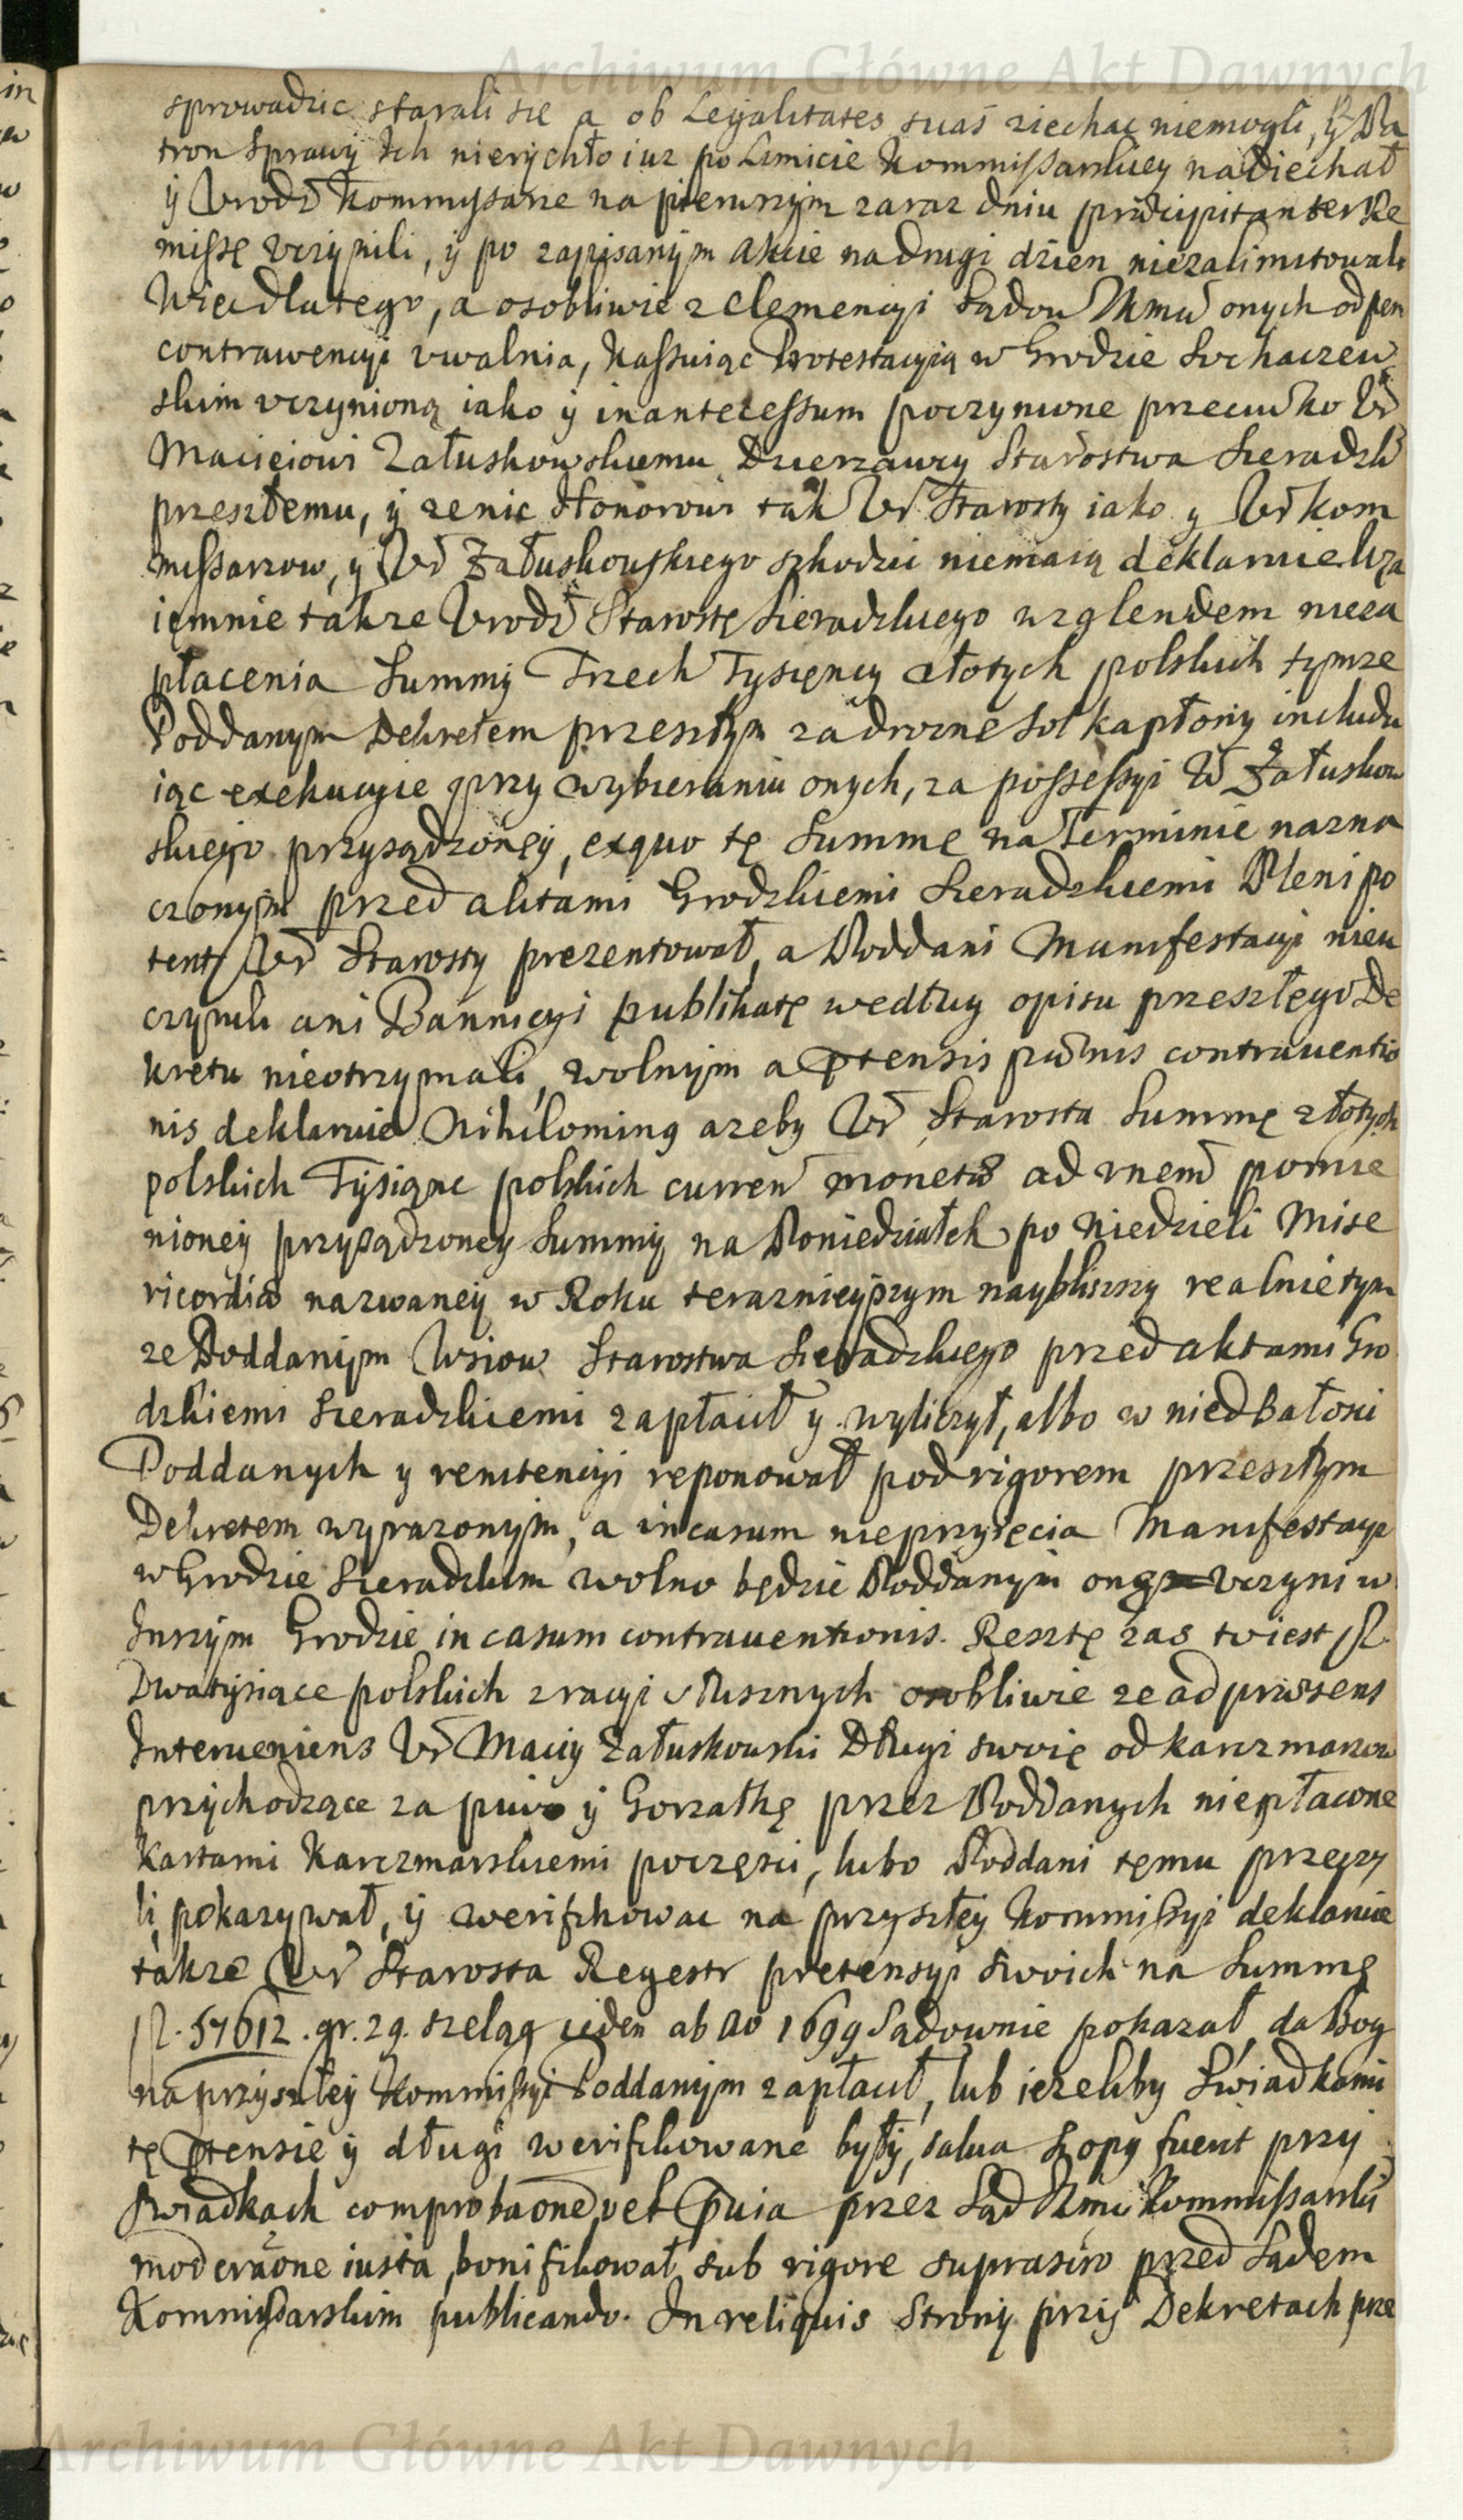 Archiwum Główne Akt Dawnych
sprowadzic starali się a ob Legalitates suas ziechac niemogli, y Pa
tron Sprawy Ich nierychło iuz po Limicie Kommissarskiey nadiechał
y Urodź Kommyssarze na pierwszym zaraz dniu prӕcipitanter Re
missę uczynili, y po zapisanym Akcie na drugi dzien niezalimitowali
Więc dlatego, a osobliwie z Clemencyi Sądow onych od pen
contrawencyi uwalnia, Kassuiąc Protestacyią w Grodzie Sochaczew
skim uczynioną iako y in antecessum poczynione przeciwko Ur
Macieiowi Załuskowskiemu Dzierzawcy Starostwa Sieradzk
przeszłemu, y ze nic Honorowi tak Ur Starosty iako y Ur Kom
missarzow, y Ur Załuskowskiego szkodzic niemaią deklaruie Wza
iemnie takze Urodz Starostę Sieradzkiego wzglendem nieza
płacenia Summy Trzech Tysięncy złotych polskich tymze
Poddanym Dekretem przeszłym za drozne sol kapłony includu
iąc exekucyie przy wybieraniu onych, za possessyi Ur Załuskow
skiego przysądzoney, exquo tę Summę na Terminie nazna
czonym przed aktami Grodzkiemi Sieradzkiemi Plenipo
tent Ur Starosty prezentował, a Poddani Manifestacyi nieu
czynili ani Bannicyi publikatę według opisu przeszłego De
kretu nieotrzymali, wolnym a ptensis pӕnis contrauentio
nis deklaruie Nihilominq azeby Ur Starosta Summę złotych
polskich Tysiąnc polskich curren monetӕ ad rnem pomie
nioney przysądzoney Summy na Poniedziałek po Niedzieli Mise
ricordiӕ nazwaney w Roku terazniejszym naybliszszy realnie tym
ze Poddanym Wsiow Starostwa Sieradzkiego przed aktami Gro
dzkiemi Sieradzkiemi zapłacił y wyliczył, albo w niedbałosci
Poddanych y renitencyi reponował pod rigorem przeszłym
Dekretem wyrazonym, a in casum nieprzyięcia Manifestacyi
w Grodzie Sieradzkim wolno będzie Poddanym uczyni w
Inszym Grodzie in casum contrauentionis. Resztę zas to iest fl.
Dwatysiące polskich z racyi słusznych osobliwie ze ad prӕsens
Interueniens Ur Maciy Załuskowski Długi swoię od karczmarzow
przychodzące za piwo y Gorzałkę przez Poddanych niepłacone
Kartami Karczmarskiemi poczęsci, lubo Poddani temu przeczy
li, pokazywał, y werifikowac na przyszłey Kommissyi deklaruie
takze Ur Starosta Regestr pretensyi swoich na Summę
fl. 57612. gr. 29. szeląg ieden ab Ao 1699 Sądownie pokazał, da Bog
na przyszłey Kommissyi Poddanym zapłacił, lub iezeliby Swiadkami
tę ptensie y długi werifikowane były, salua fuerit przy
Swiadkach comprobaone, vel pvia przez Sąd Kommissarski
moderaone iusta, bonifikował, sub rigore przed Sądem
Kommissarskim publicando. In reliquis Strony przy Dekretach prze
Archiwum Główne Akt Dawnych